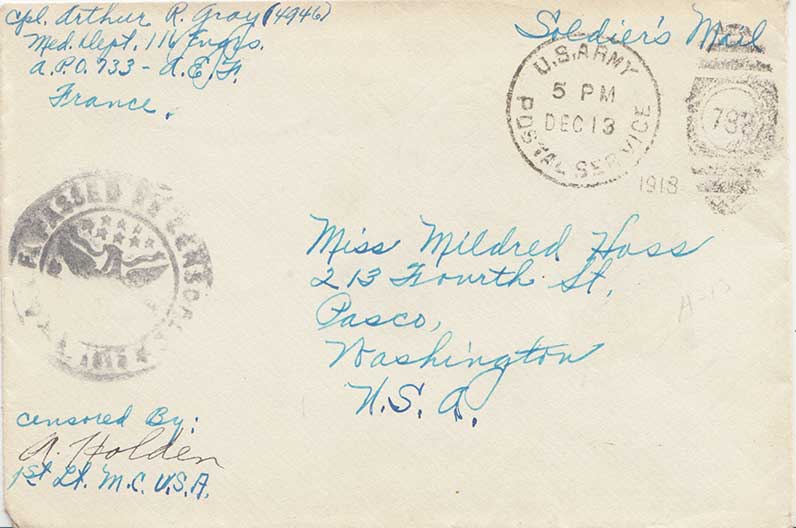 Cpl. Arthur R. Gray (4946)
Med. Dept. 116 Engrs.
A.P.O. 733 - A.E.F.
France.
Soldier's Mail
U.S. ARMY
5 PM
DEC 13
POSTAL SERVICE
1918
PASSED BY CENSOR
Miss Mildred Hoss
213 Fourth St,
Pasco,
Washington
U.S.A.
H-13
Censored By:
A. Holden
1st Lt. M.C. U.S.A.